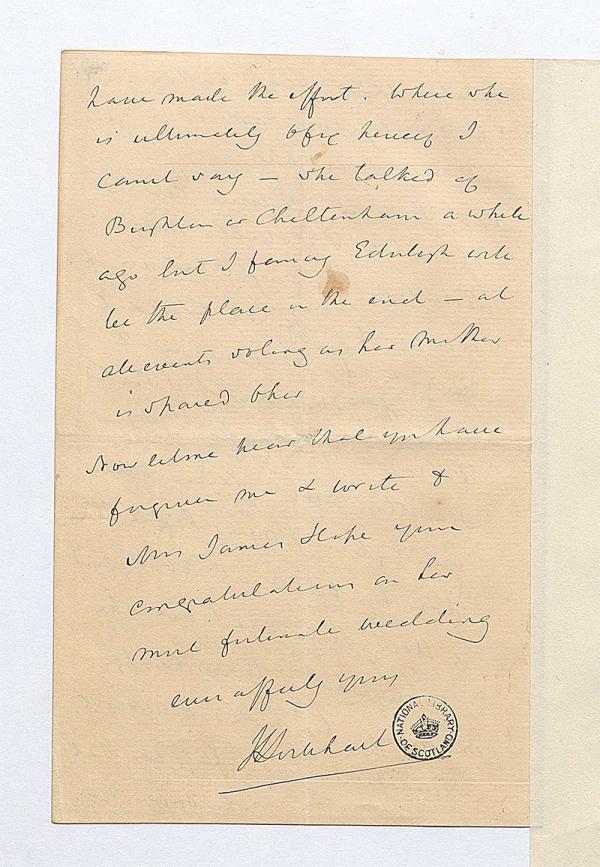 have made the effort. Where she
is ultimately to fix herself I
cannot say — she talked of
Brighton or Cheltenham a while
ago but I fancy Edinbgh will
be the place in the end — at
all events so long as her Mother
is spared to her
Now let me hear that you have
forgiven me & write to
Mrs James Hope your
congratulations on her
most fortunate wedding
ever affectly yours
JGLockhart
NATIONAL LIBRARY
OF SCOTLAND